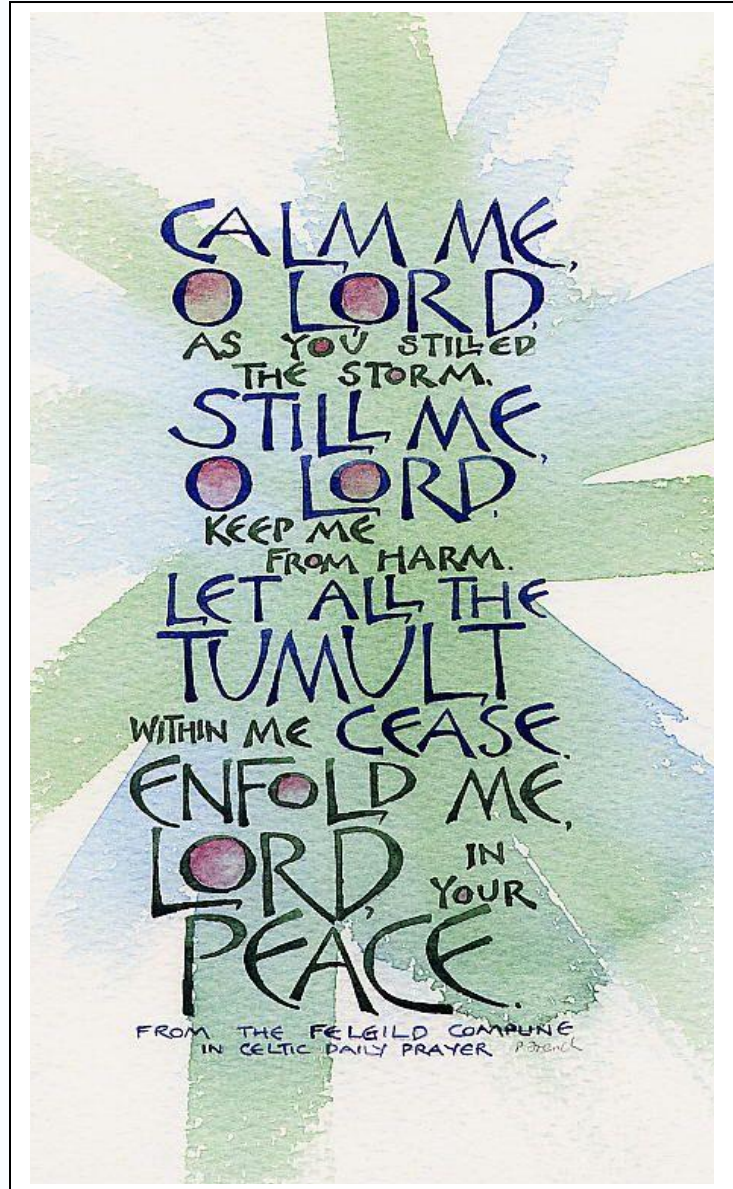 CALM ME,
O LORD,
AS YOU STILLED
THE STORM.
STILL ME,
O LORD,
KEEP ME
FROM HARM.
LET ALL THE
TUMULT
WITHIN ME CEASE.
ENFOLD ME,
LORD, IN YOUR
PEACE.
FROM THE FELGILD COMPLINE
IN CELTIC DAILY PRAYER P French